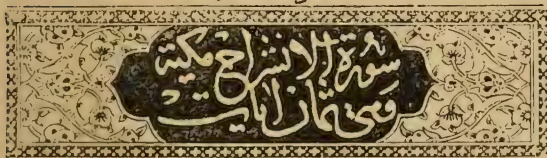 سورة الانشراح مكية
وهى ثمان آيات